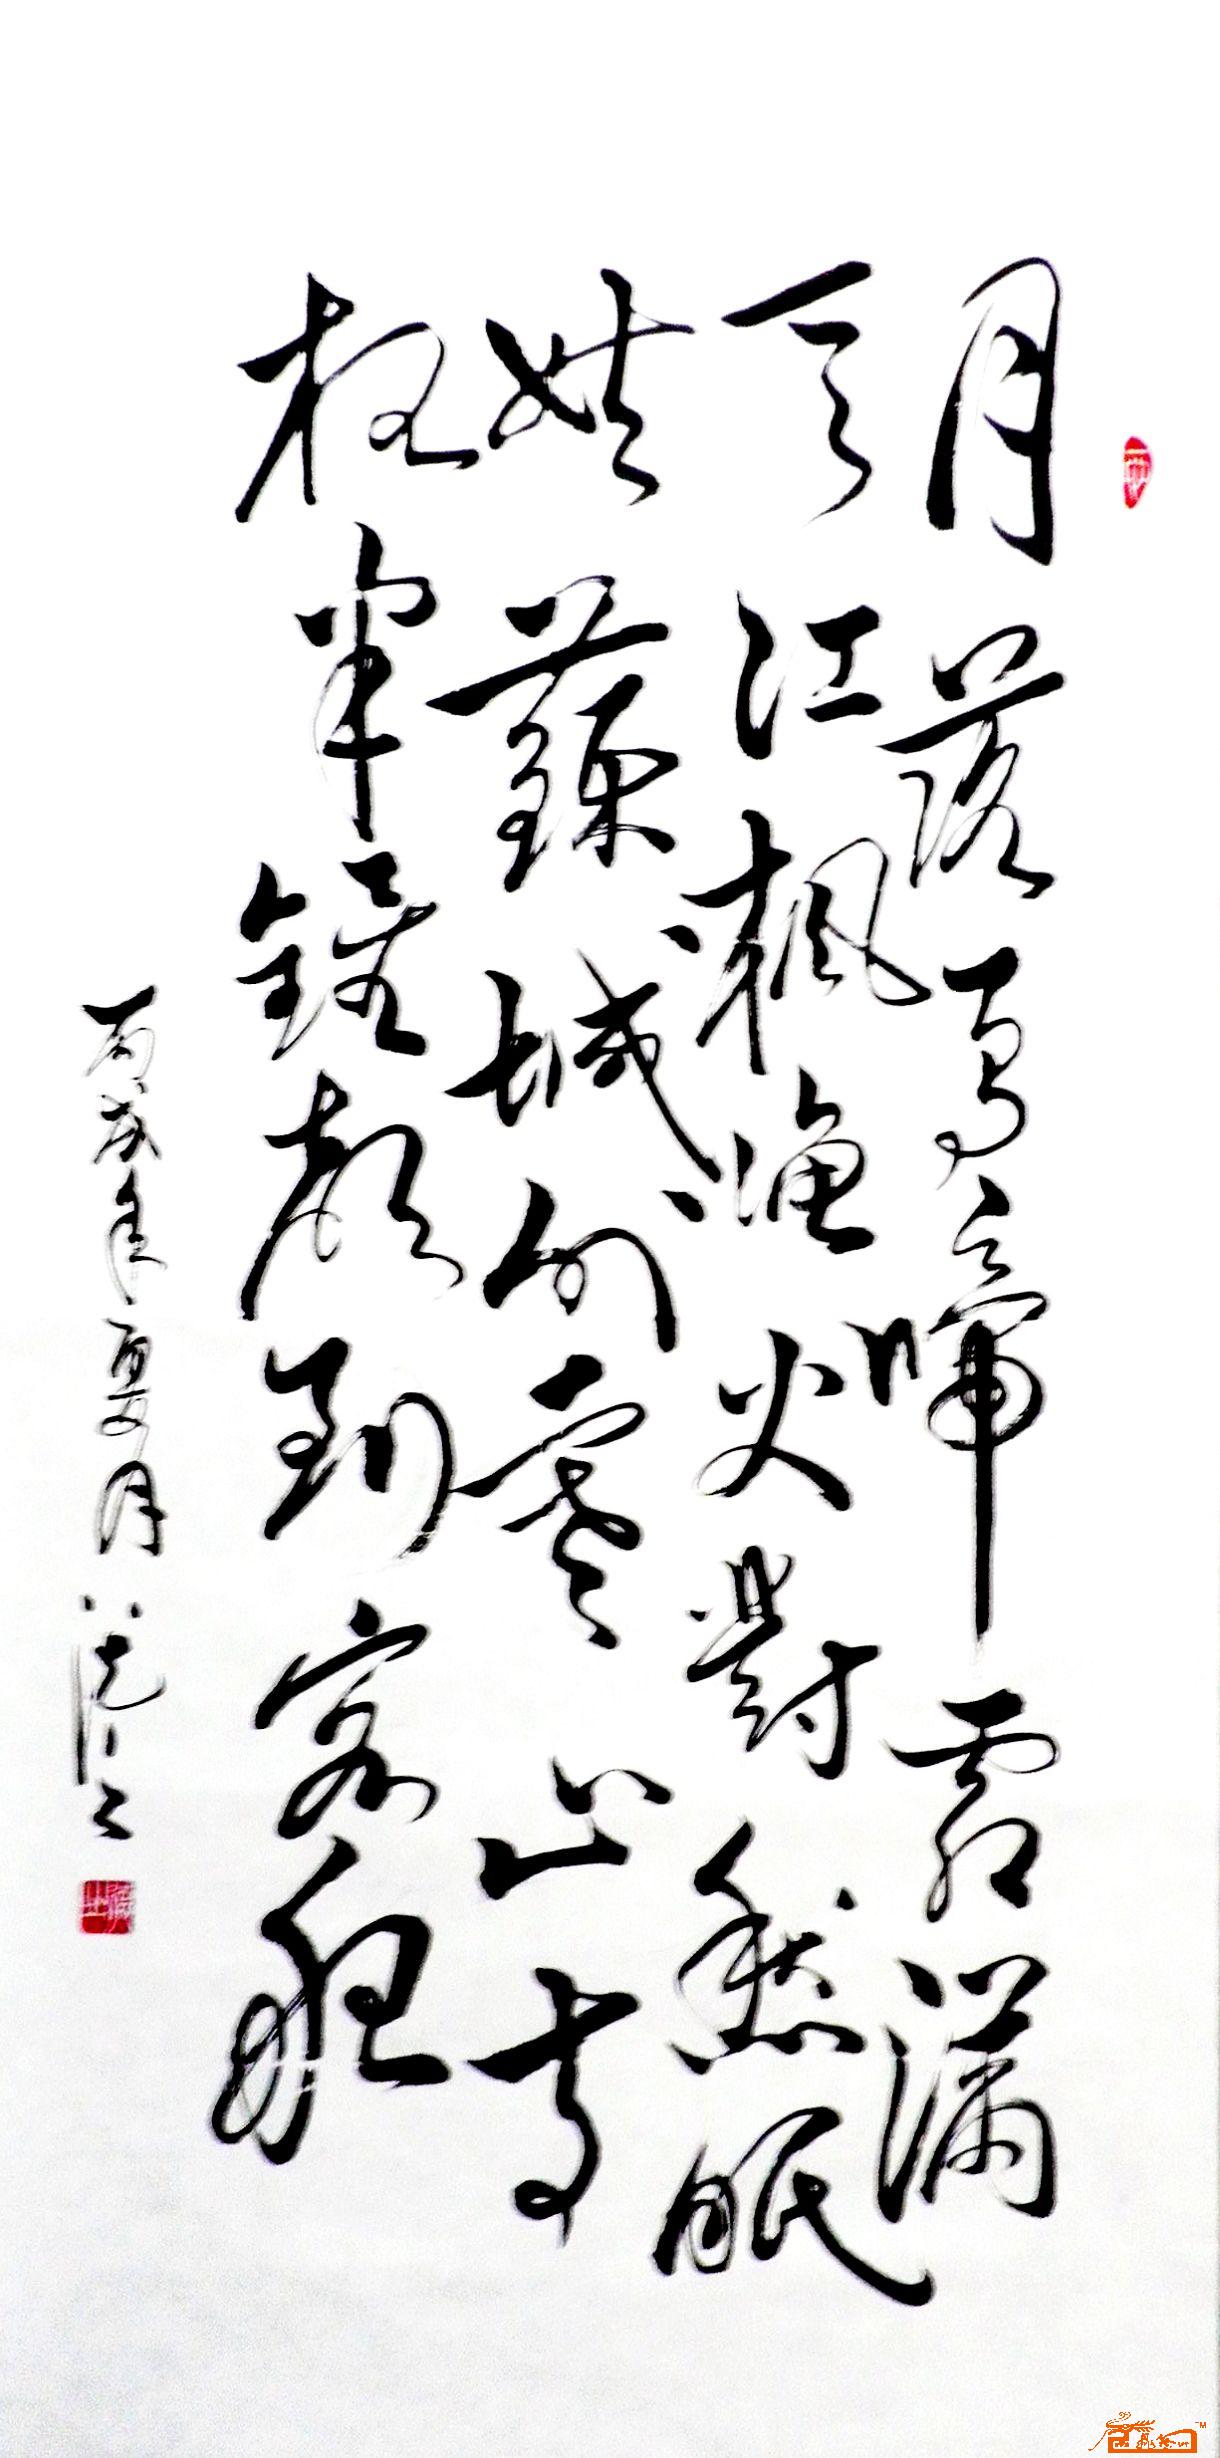 月落烏啼霜滿
天江楓漁火對愁眠
姑蘇城外寒山寺
夜半鐘聲到客船
丙戌年夏月